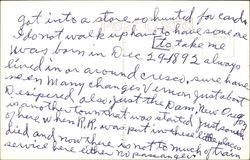 got into a store so hunted for cards
I do not walk up have to have some one
to take me
was born in Dec 29-1892 always
lived in or around Cresco, sure have
seen many changes Vernon just about
also just the Dam, New
is another town that was started just south
of here when R.R. was put in these little places
died and now there is not to much of
service here either no passengers